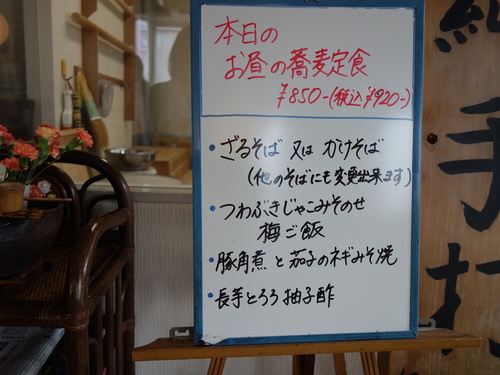 本日の
お昼の蕎麦定食
¥850-(税込¥920-)
・ざるそば 又は かけそば
(他のそばにも変更出来ます)
・つわぶきじゃこみそのせ
梅ご飯
・豚角煮と茄子のネギみそ焼
・長芋とろろ 柚子酢
手打